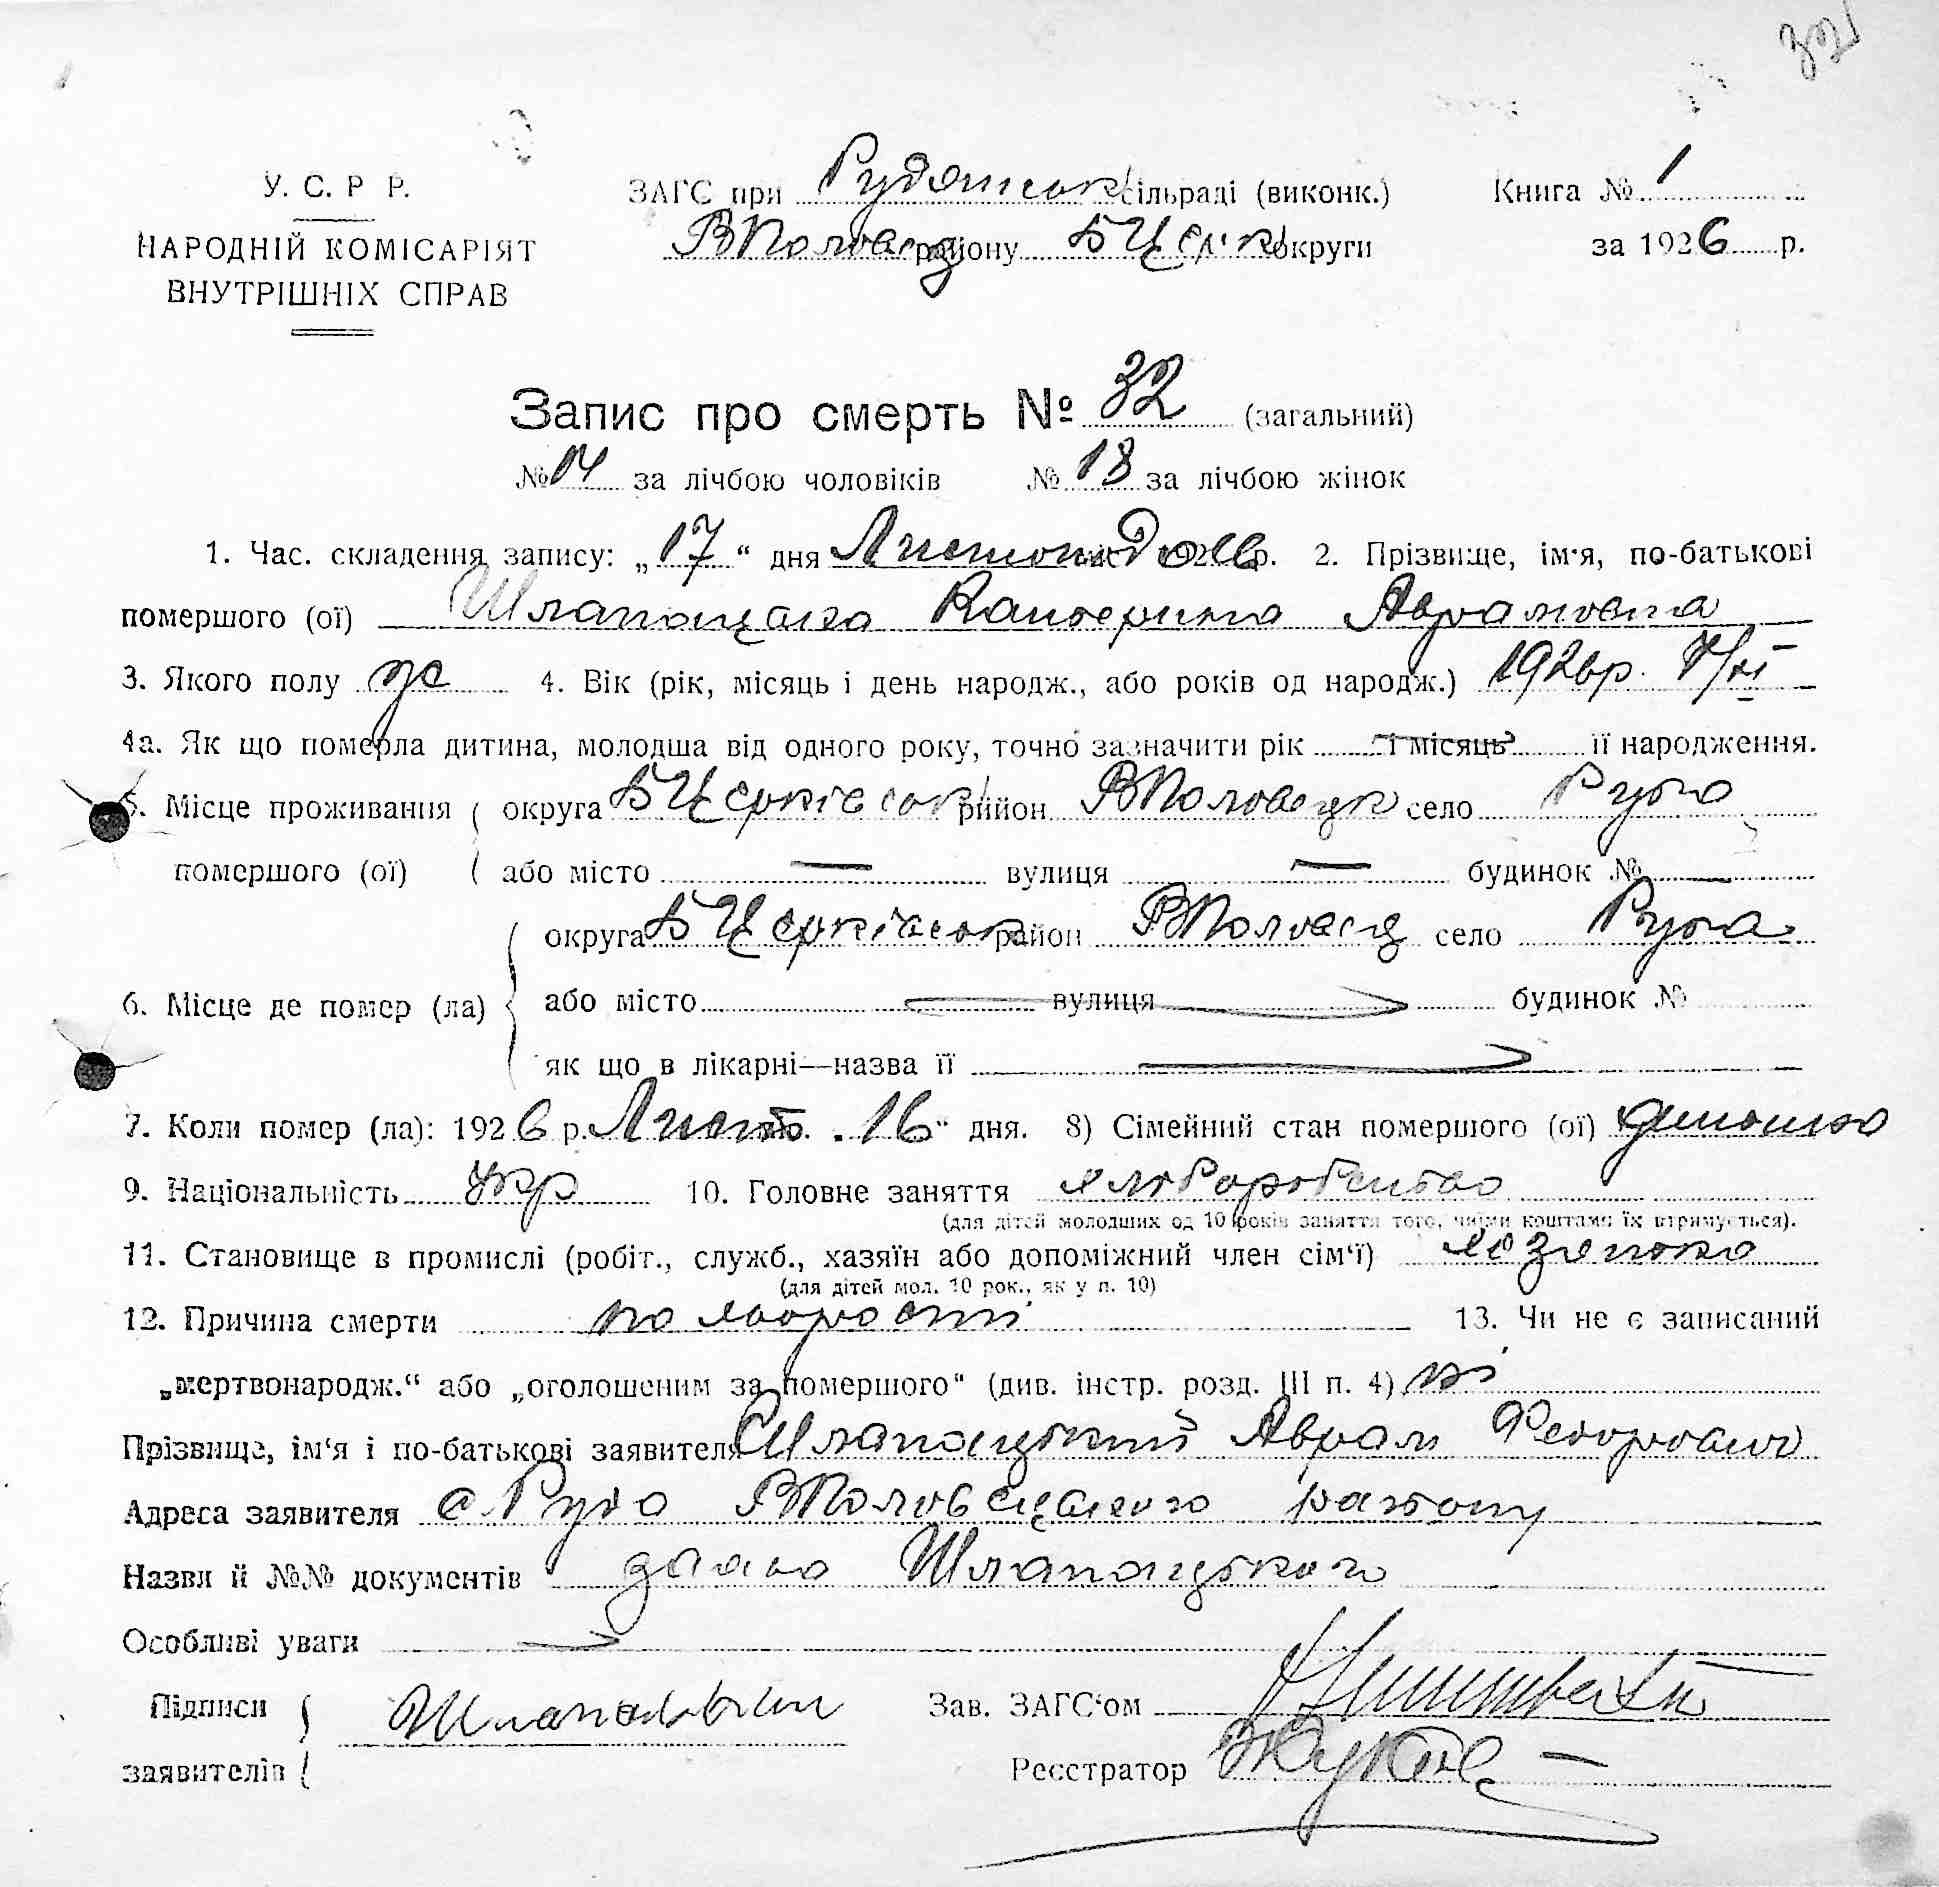 321
У. С. Р Р.
НАРОДНІЙ КОМІСАРІЯТ
ВНУТРІШНІХ СПРАВ
ЗАГС при Рудянськ сільраді (виконк.)
ВПоловец району БЦерк округи
Книга № 1
за 1926 р.
Запис про смерть № 32 (загальний)
№ 14 за лічбою чоловіків № 18 за лічбою жінок
1. Час. складення запису: „17“ дня Листопад 1926 р. 2. Прізвище, ім'я, по-батькові
помершого (ої) Шлапацька Катерина Аврамовна
3. Якого полу ж 4. Вік (рік, місяць і день народж., або років од народж.) 1926р. 7/XI
4а. Як що померла дитина, молодша від одного року, точно зазначити рік і місяць її народження.
5. Місце проживання ( округа БЦерківськ район ВПоловецк село Руда
помершого (ої) ( або місто — вулиця — будинок № —
округа БЦерківськ район ВПоловец село Руда
6. Місце де помер (ла) { або місто вулиця будинок №
як що в лікарні—назва її
7. Коли помер (ла): 1926 р. Листоп. „16“ дня. 8) Сімейний стан помершого (ої) дитина
9. Національність Укр 10. Головне заняття хліборобство
(для дітей молодших од 10 років заняття того, чиїми коштами їх втримується).
11. Становище в промислі (робіт., служб., хазяїн або допоміжний член сім'ї) хазяїна
(для дітей мол. 10 рок., як у п. 10)
12. Причина смерти по хворости 13. Чи не є записаний
„мертвонародж.“ або „оголошеним за помершого“ (див. інстр. розд. III п. 4) ні
Прізвище, ім'я і по-батькові заявителя Шлапацький Аврам Федорович
Адреса заявителя с. Руда ВПоловецького району
Назви й №№ документів Шлапацького
Особливі уваги
Підписи ) Зав. ЗАГС'ом
заявителів ( Реєстратор